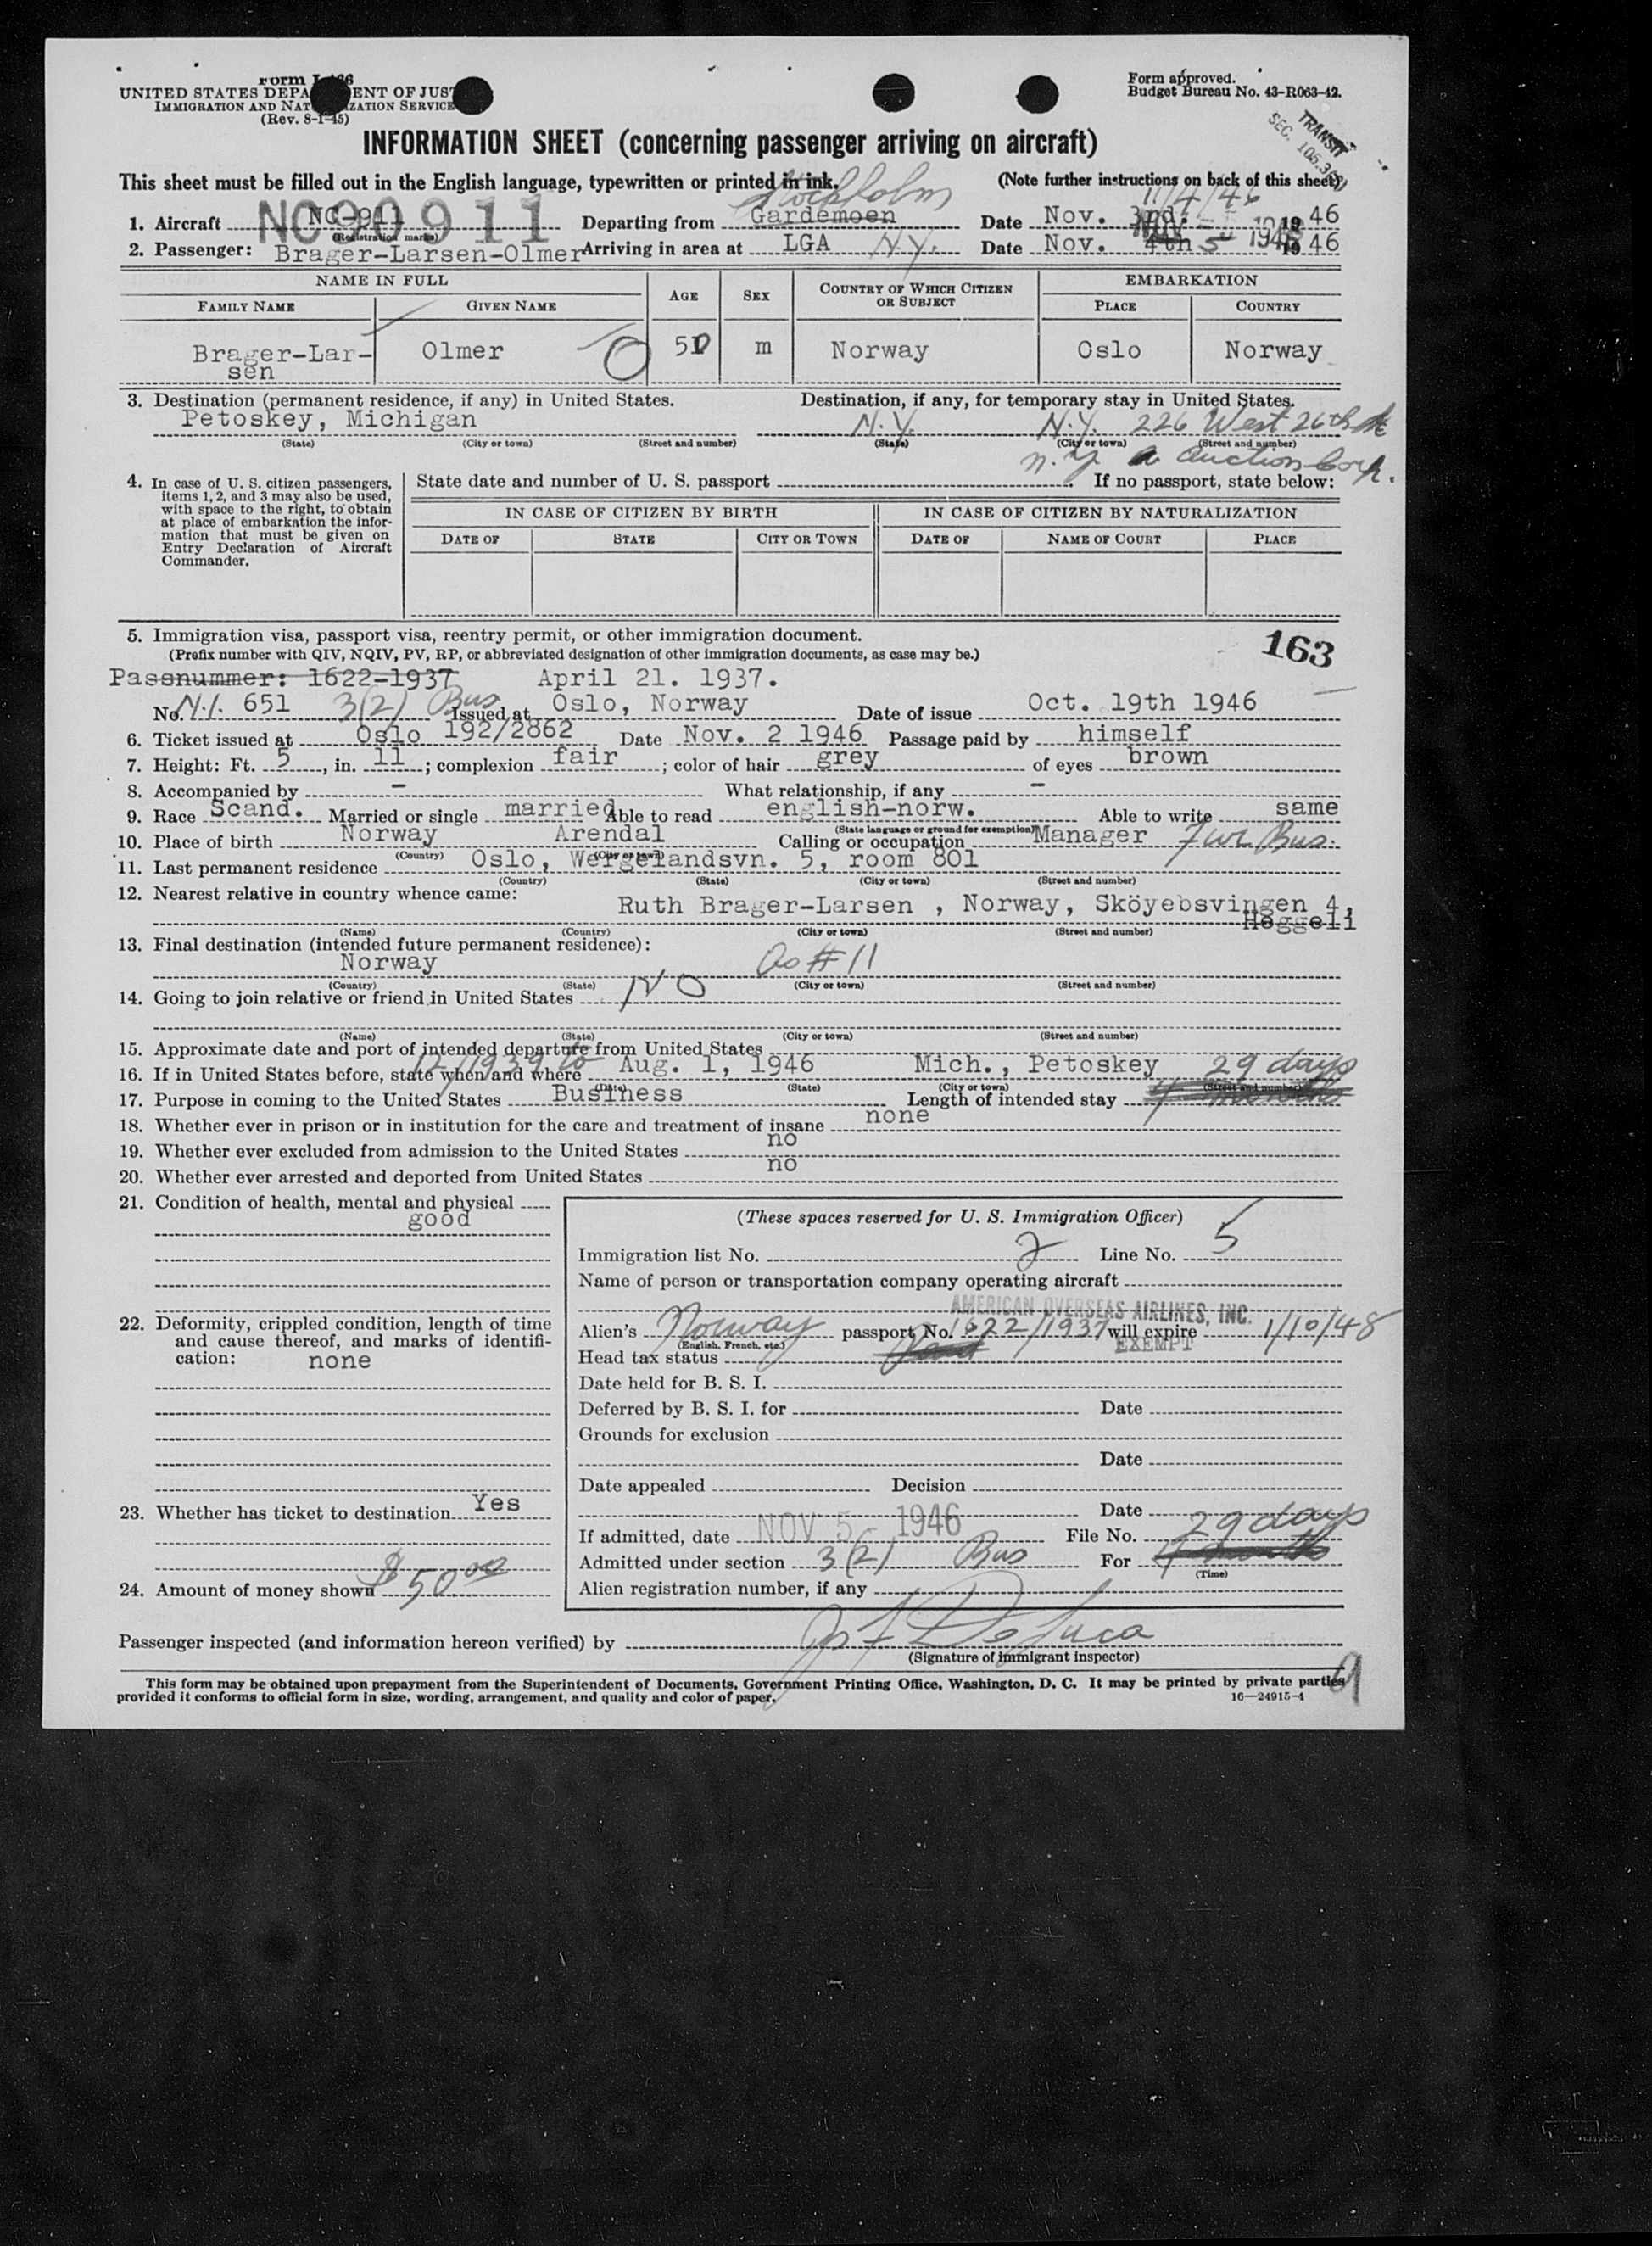 Form I-466
UNITED STATES DEPARTMENT OF JUST
IMMIGRATION AND NATURALIZATION SERVICE
(Rev. 8-1-45)
Form approved.
Budget Bureau No. 43-R063-42.
TRANSIT
SEC. 105.3
INFORMATION SHEET (concerning passenger arriving on aircraft)
This sheet must be filled out in the English language, typewritten or printed in ink. (Note further instructions on back of this sheet)
Stockholm 11/4/46
1. Aircraft NC-911 NC90911 Departing from Gardemoen Date Nov. 3rd. 1946
(Registration marks)
2. Passenger: Brager-Larsen-Olmer Arriving in area at LGA N.Y. Date Nov. 4th 5 1946
NOV - 5 1946
NAME IN FULL AGE SEX COUNTRY OF WHICH CITIZEN OR SUBJECT EMBARKATION
FAMILY NAME GIVEN NAME PLACE COUNTRY
Brager-Larsen Olmer m Norway Oslo Norway
3. Destination (permanent residence, if any) in United States. Destination, if any, for temporary stay in United States.
Petoskey, Michigan N.Y. N.Y. 226 West 26th St
(State) (City or town) (Street and number) (State) (City or town) (Street and number)
N.Y. Auction Corp.
4. In case of U. S. citizen passengers, items 1, 2, and 3 may also be used, with space to the right, to obtain at place of embarkation the information that must be given on Entry Declaration of Aircraft Commander.
State date and number of U. S. passport If no passport, state below:
IN CASE OF CITIZEN BY BIRTH IN CASE OF CITIZEN BY NATURALIZATION
DATE OF STATE CITY OR TOWN DATE OF NAME OF COURT PLACE
5. Immigration visa, passport visa, reentry permit, or other immigration document. 163
(Prefix number with QIV, NQIV, PV, RP, or abbreviated designation of other immigration documents, as case may be.)
Passnummer: 1622-1937 April 21. 1937.
No. N.I. 651 3(2) Bus Issued at Oslo, Norway Date of issue Oct. 19th 1946
6. Ticket issued at Oslo 192/2862 Date Nov. 2 1946 Passage paid by himself
7. Height: Ft. 5, in. 11; complexion fair; color of hair grey of eyes brown
8. Accompanied by - What relationship, if any -
9. Race Scand. Married or single married Able to read english-norw. Able to write same
(State language or ground for exemption)
10. Place of birth Norway Arendal Calling or occupation Manager Fur Bus.
(Country) (City or town)
11. Last permanent residence Oslo, Wergelandsvn. 5, room 801
(Country) (State) (City or town) (Street and number)
12. Nearest relative in country whence came:
Ruth Brager-Larsen , Norway, Sköyebsvingen 4,
Heggeli
(Name) (Country) (City or town) (Street and number)
13. Final destination (intended future permanent residence):
Norway As #11
(Country) (State) (City or town) (Street and number)
14. Going to join relative or friend in United States NO
(Name) (State) (City or town) (Street and number)
15. Approximate date and port of intended departure from United States
16. If in United States before, state when and where 12/1939 to Aug. 1, 1946 Mich., Petoskey 29 days
(Date) (State) (City or town) (Street and number)
17. Purpose in coming to the United States Business Length of intended stay
18. Whether ever in prison or in institution for the care and treatment of insane none
19. Whether ever excluded from admission to the United States no
20. Whether ever arrested and deported from United States no
21. Condition of health, mental and physical
good
22. Deformity, crippled condition, length of time and cause thereof, and marks of identification: none
23. Whether has ticket to destination Yes
24. Amount of money shown $50 00
(These spaces reserved for U. S. Immigration Officer)
Immigration list No. 2 Line No. 5
Name of person or transportation company operating aircraft
AMERICAN OVERSEAS AIRLINES, INC.
Alien's Norway passport No. 1622/1937 will expire 1/10/48
(English, French, etc.)
Head tax status EXEMPT
Date held for B. S. I.
Deferred by B. S. I. for Date
Grounds for exclusion
Date
Date appealed Decision
Date
If admitted, date NOV 5 1946 File No. 29 days
Admitted under section 3(2) Bus For 4 months
(Time)
Alien registration number, if any
Passenger inspected (and information hereon verified) by
(Signature of immigrant inspector)
This form may be obtained upon prepayment from the Superintendent of Documents, Government Printing Office, Washington, D. C. It may be printed by private parties
provided it conforms to official form in size, wording, arrangement, and quality and color of paper.
16—24915-1
9